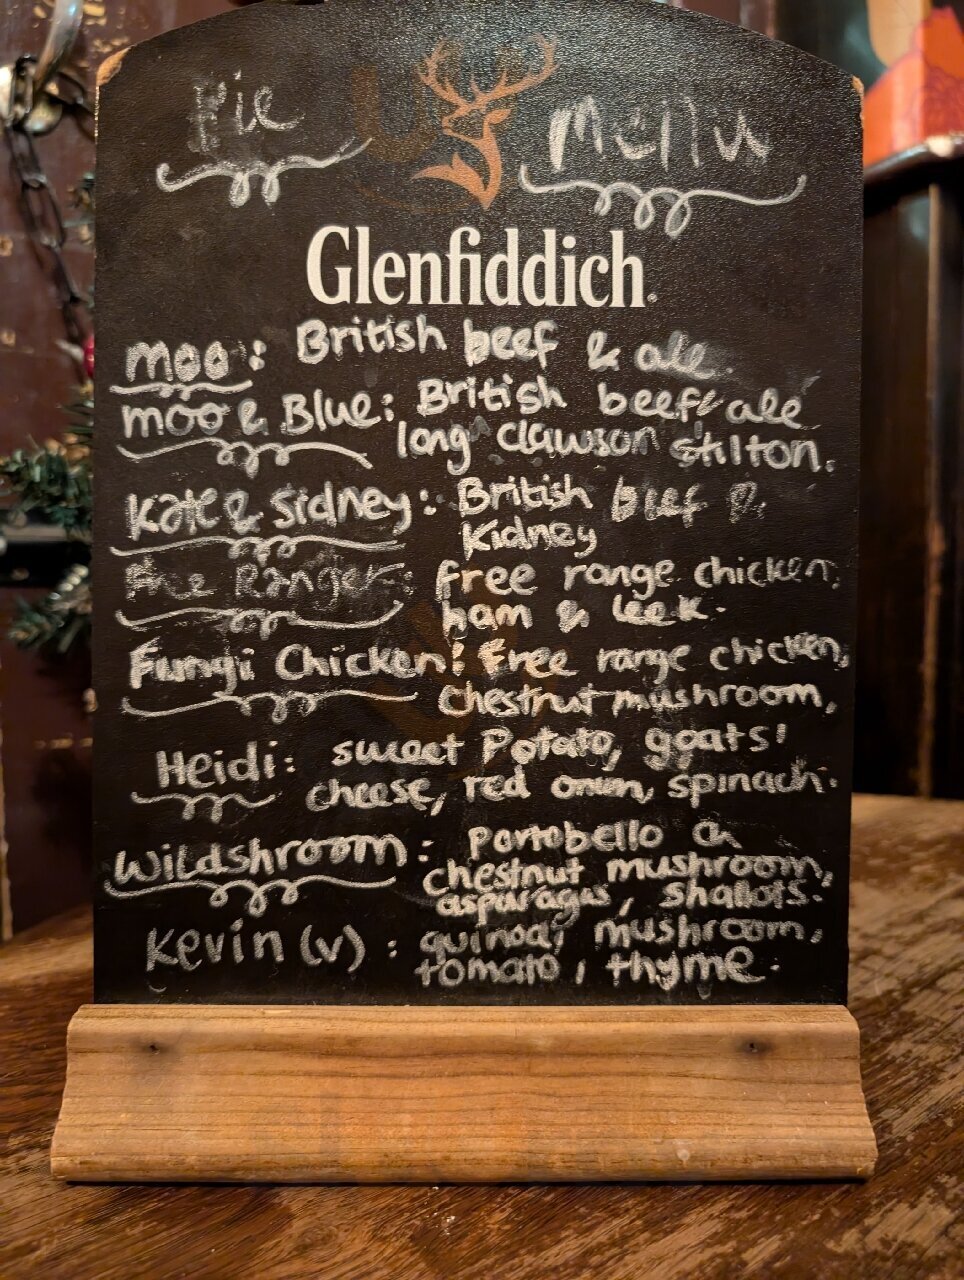 Pie Menu
Glenfiddich
Moo: British beef & ale.
Moo & Blue: British beef & ale
long clawson stilton.
Kate & Sidney: British beef &
Kidney
Free Ranger: free range chicken,
ham & leek.
Fungi Chicken: Free range chicken,
Chestnut mushroom,
Heidi: sweet Potato, goats'
cheese, red onion, spinach.
Wildshroom: Portobello &
chestnut mushroom,
asparagus, shallots.
Kevin (v): quinoa, mushroom,
tomato, thyme.